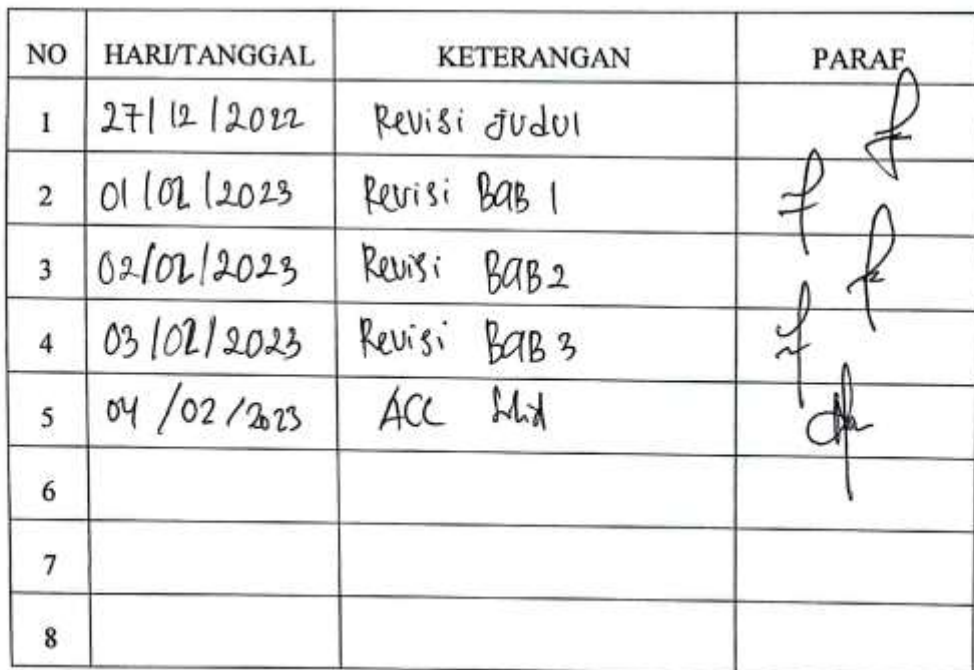 NO HARI/TANGGAL KETERANGAN PARAF
1 27/12/2022 Revisi judul
2 01/02/2023 Revisi BAB 1
3 02/02/2023 Revisi BAB 2
4 03/02/2023 Revisi BAB 3
5 04/02/2023 ACC
6
7
8